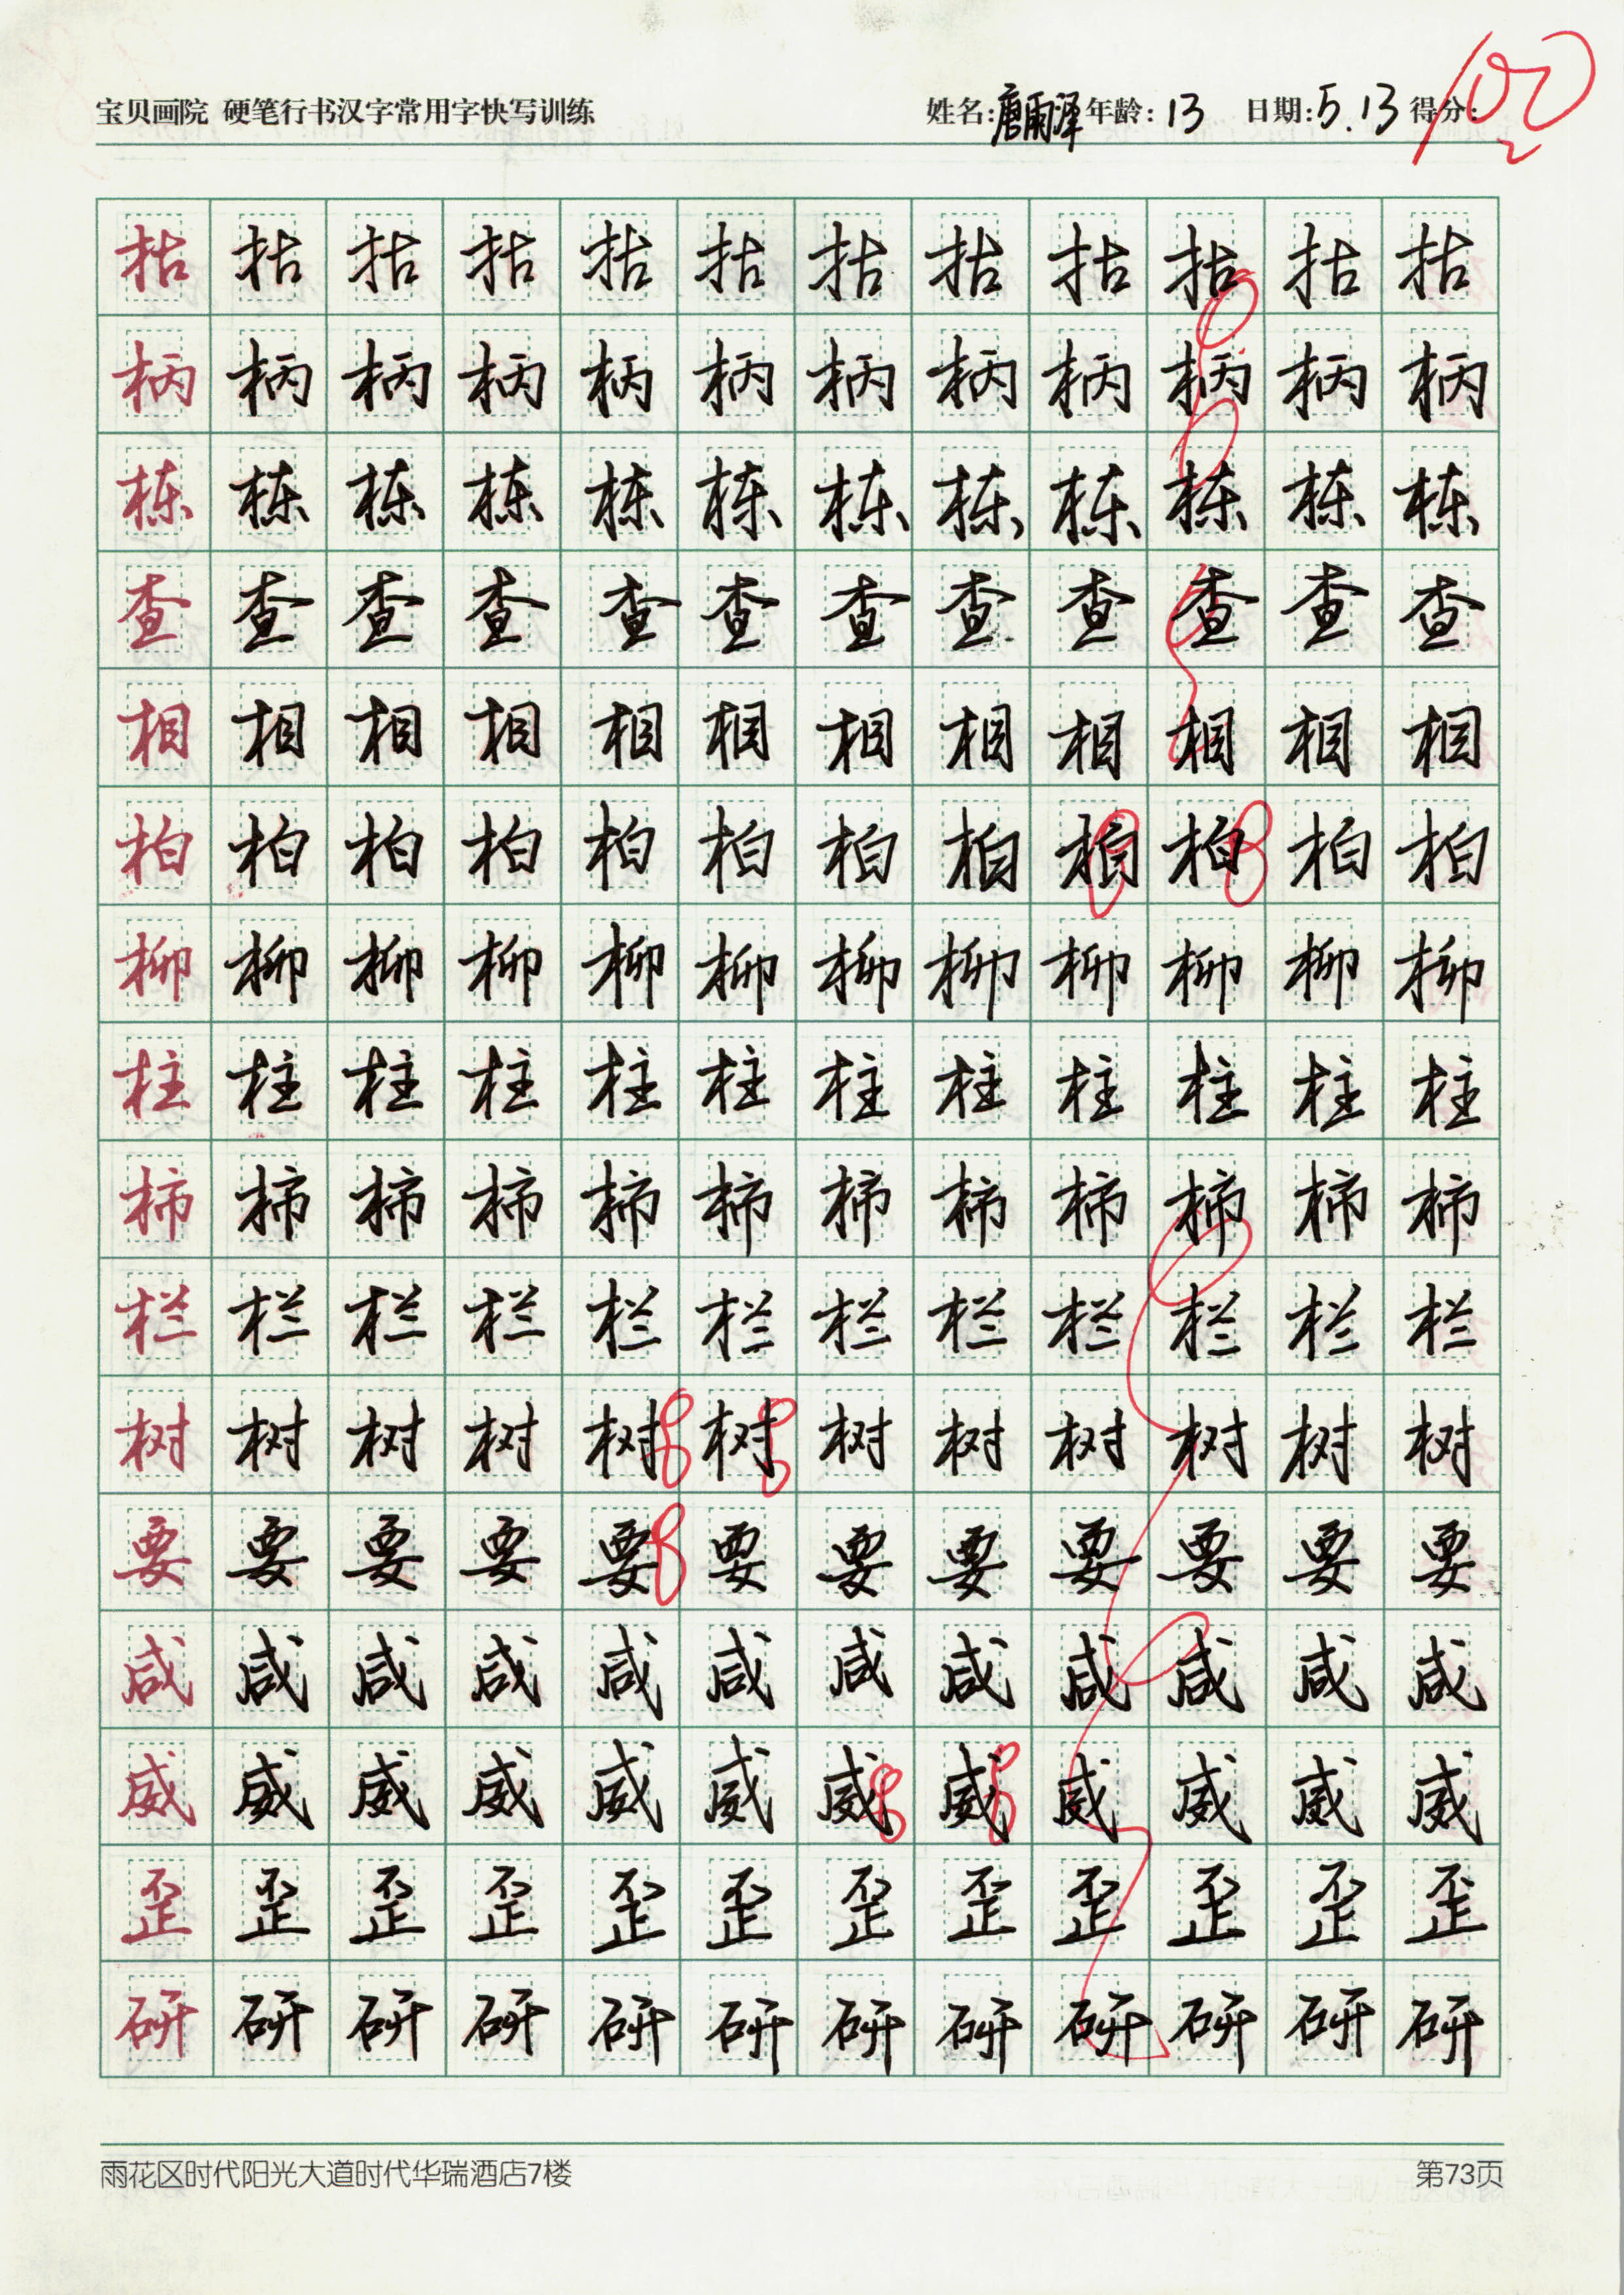 宝贝画院 硬笔行书汉字常用字快写训练 姓名:唐雨泽 年龄:13 日期:5.13 得分:100
枯 枯 枯 枯 枯 枯 枯 枯 枯 枯 枯 枯
柄 柄 柄 柄 柄 柄 柄 柄 柄 柄 柄 柄
栋 栋 栋 栋 栋 栋 栋 栋 栋 栋 栋 栋
查 查 查 查 查 查 查 查 查 查 查 查
相 相 相 相 相 相 相 相 相 相 相 相
柏 柏 柏 柏 柏 柏 柏 柏 柏 柏 柏 柏
柳 柳 柳 柳 柳 柳 柳 柳 柳 柳 柳 柳
柱 柱 柱 柱 柱 柱 柱 柱 柱 柱 柱 柱
柿 柿 柿 柿 柿 柿 柿 柿 柿 柿 柿 柿
栏 栏 栏 栏 栏 栏 栏 栏 栏 栏 栏 栏
树 树 树 树 树 树 树 树 树 树 树 树
要 要 要 要 要 要 要 要 要 要 要 要
咸 咸 咸 咸 咸 咸 咸 咸 咸 咸 咸 咸
威 威 威 威 威 威 威 威 威 威 威 威
歪 歪 歪 歪 歪 歪 歪 歪 歪 歪 歪 歪
研 研 研 研 研 研 研 研 研 研 研 研
雨花区时代阳光大道时代华瑞酒店7楼 第73页